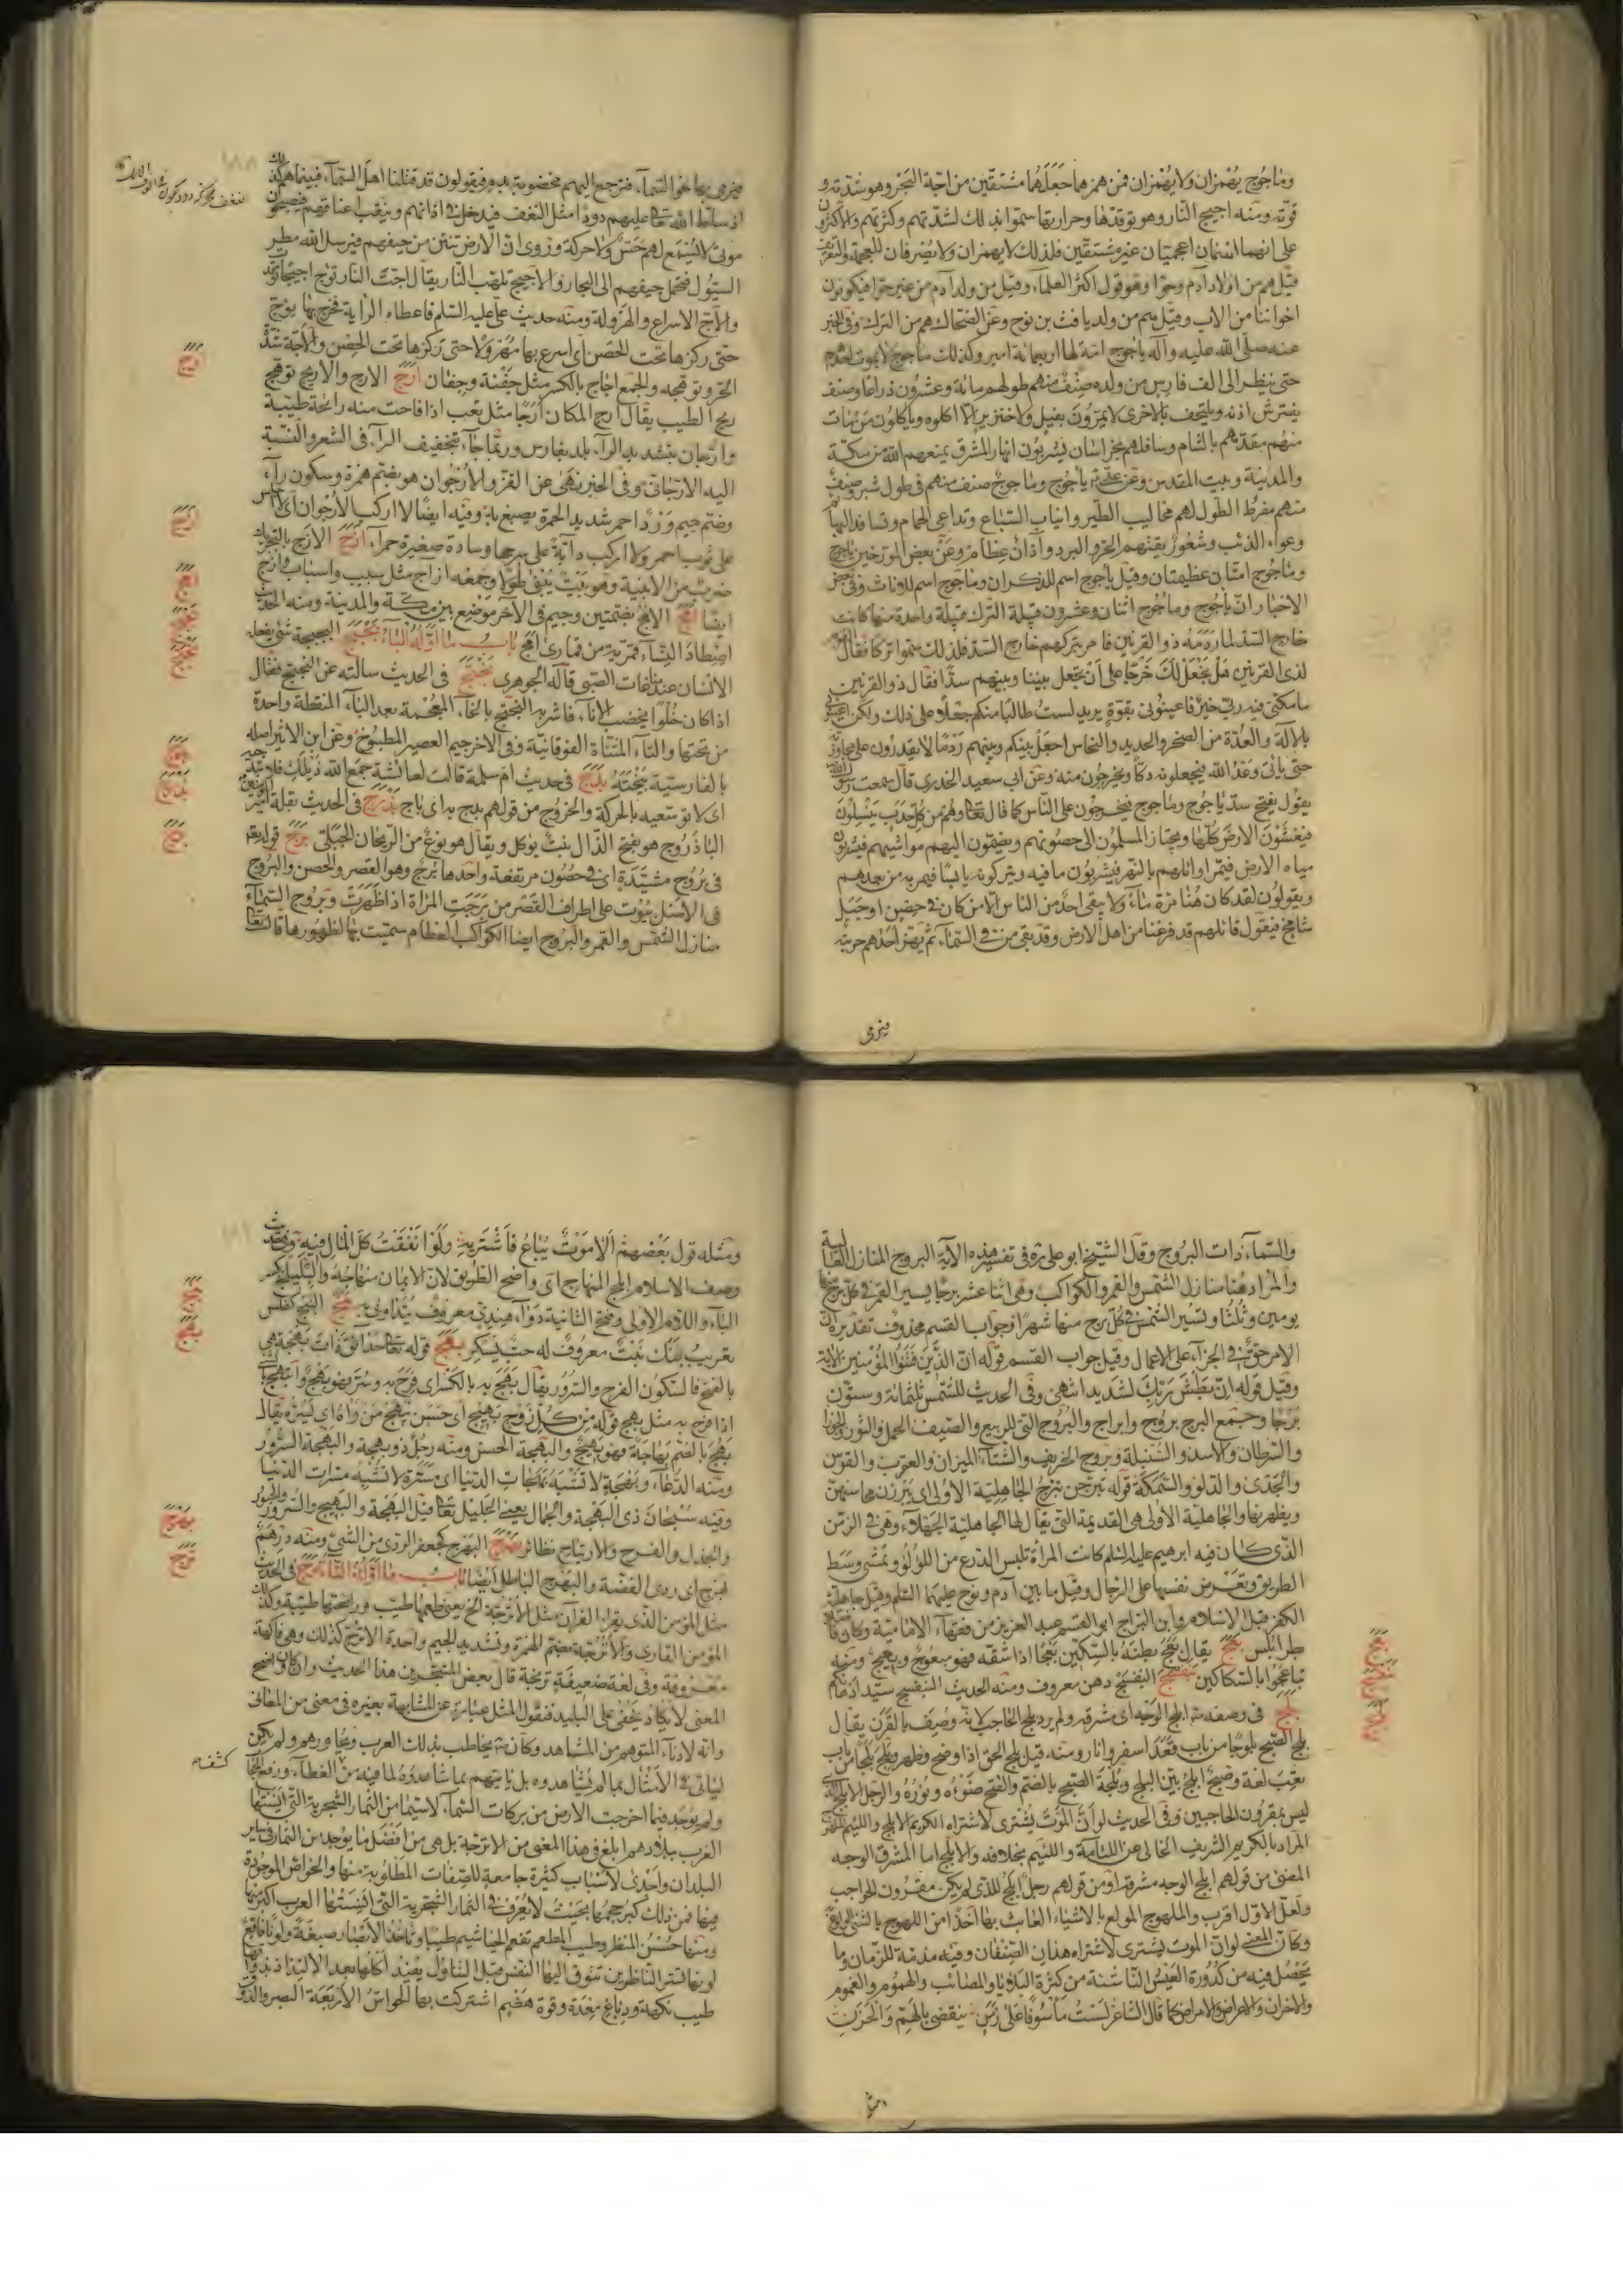 وماجوج يهمزان ولا يهمزان فمن همزهما جعلهما مشتقين من اجة الحر وهو شدته و
قوته ومنه اجيج النار وهو توقدها وحرارتها سموا بذلك لشدتهم وكثرتهم والاكثرون
على انهما اسمان اعجميان غير مشتقين فلذلك لا يهمزان ولا يصرفان للعجمة والتعريف
قيل هم من اولاد آدم وحوا وهو قول اكثر العلماء وقيل من ولد آدم من غير حوا فيكونون
اخواننا من الاب وقيل هم من ولد يافث بن نوح وعن الضحاك هم من الترك وفى الخبر
عنه صلى الله عليه وآله ياجوج امة لها اربعمائة امير وكذلك ماجوج لا يموت احدهم
حتى ينظر الى الف فارس من ولده صنف منهم طولهم مائة وعشرون ذراعا وصنف
يفترش اذنه ويلتحف بالاخرى لا يمرون بفيل ولا خنزير الا اكلوه وياكلون من مات
منهم مقدمهم بالشام وساقهم بخراسان يشربون انهار المشرق يمنعهم الله من مكة
والمدينة وبيت المقدس وعن على ياجوج وماجوج صنف منهم فى طول شبر وصنف
منهم مفرط الطول لهم مخاليب الطير وانياب السباع وتداعى الحمام وتسافد البهائم
وعواء الذئب وشعور تقيهم الحر والبرد وآذان عظام وعن بعض المورخين ياجوج
وماجوج امتان عظيمتان وقيل ياجوج اسم للذكران وماجوج اسم للاناث وفى بعض
الاخبار ان ياجوج وماجوج اثنان وعشرون قبيلة الترك قبيلة واحدة منها كانت
خارج السد لما ردمه ذو القرنين فامر بتركهم خارج السد فلذلك سموا تركا فقال
لذى القرنين هل نجعل لك خرجا على ان تجعل بيننا وبينهم سدا فقال ذو القرنين
ما مكنى فيه ربى خير فاعينونى بقوة يريد لست طالبا منكم جعلا على ذلك ولكن اعينونى
بالالة والعدة من الصخر والحديد والنحاس اجعل بينكم وبينهم ردما لا يقدرون على مجاوزته
حتى ياتى وعد الله فيجعلونه دكا ويخرجون منه وعن ابى سعيد الخدرى قال سمعت رسول الله
يقول يفتح سد ياجوج وماجوج فيخرجون على الناس كما قال تعالى وهم من كل حدب ينسلون
فيغشون الارض كلها وينحاز المسلمون الى حصونهم ويضمون اليهم مواشيهم فيشربون
مياه الارض فيمر اوائلهم بالنهر فيشربون ما فيه ويتركونه يابسا فيمر به من بعدهم
ويقولون لقد كان هنا مرة ماء ولا يبقى احد من الناس الا من كان فى حصن او جبل
شامخ فيقول قائلهم قد فرغنا من اهل الارض وقد بقى من فى السماء ثم يهز احدهم حربته
فيرمى
فيرمى بها نحو السماء فترجع اليهم مخضوبة بدم فيقولون قد قتلنا اهل السماء فبينما هم كذلك
اذ سلط الله تعالى عليهم دودا مثل النغف فيدخل فى اذانهم وينقب اعناقهم فيصبحون
موتى لا يسمع لهم حس ولا حركة وروى ان الارض تنتن من جيفهم فيرسل الله مطير
السيول فتحمل جيفهم الى البحار والاجيج تلهب النار يقال اجت النار توج اجيجا توقد
والاج الاسراع والهرولة ومنه حديث على عليه السلم فاعطاه الراية فخرج بها يوج
حتى ركزها تحت الحصن اى اسرع بها مهرولا حتى ركزها تحت الحصن والاجة شدة
الحر وتوهجه والجمع اجاج بالكسر مثل جفنة وجفان ارج الارج والاريج توهج
ريح الطيب يقال ارج المكان ارجا مثل تعب اذا فاحت منه رائحة طيبة
وارجان بتشديد الراء بلد بفارس وربما جاء بتخفيف الراء فى الشعر والنسبة
اليه الارجانى وفى الخبر نهى عن القز والارجوان هو بضم همزة وسكون راء
وضم جيم ورد احمر شديد الحمرة يصبغ به وفيه ايضا لا اركب الارجوان اى لا اجلس
على ثوب احمر ولا اركب دابة على سرجها وسادة صغيرة حمراء ازج الازج بالتحريك
ضرب من الابنية وهو بيت يبنى طولا وجمعه ازاج مثل سبب واسباب وازج
ايضا امج الامج بضمتين وجيم فى الآخر موضع بين مكة والمدينة ومنه الحديث
اصطاد النساء قمرية من قمارى امج باب ما اوله الباء بجبج البجبجة شئ يفعله
الانسان عند مناغات الصبى قاله الجوهرى بختج فى الحديث سالته عن البختج فقال
اذا كان حلوا يخضب الاناء فاشربه البختج بالخاء المعجمة بعد الباء المنقطة واحدة
من تحتها والتاء المثناة الفوقانية وفى الاخر جيم العصير المطبوخ وعن ابن الاثير اصله
بالفارسية ميبخته بدج فى حديث ام سلمة قالت لعائشة جمع الله ذيلك فلا تبدحيه
اى لا توسعيه بالحركة والخروج من قولهم بدج به اى باح بذرج فى الحديث بقلة امير المؤمنين
الباذروج هو بفتح الذال نبت يوكل ويقال هو نوع من الريحان الجبلى برج قوله تعالى
فى بروج مشيدة اى فى حصون مرتفعة واحدها برج وهو القصر والحصن والبروج
فى الاصل بيوت على اطراف القصر من برجت المراة اذا ظهرت وبروج السماء
منازل الشمس والقمر والبروج ايضا الكواكب العظام سميت بها لظهورها قال تعالى
ارج
ازج
امج
بجبج
بختج
بدج
بذرج
برج
والسماء ذات البروج وقال الشيخ ابو على ره فى تفسير هذه الآية البروج المنازل العالية
والمراد هنا منازل الشمس والقمر والكواكب وهى اثنا عشر برجا يسير القمر فى كل برج منها
يومين وثلثا وتسير الشمس فى كل برج منها شهرا وجواب القسم محذوف تقديره ان
الامر حق فى الجزاء على الاعمال وقيل جواب القسم قوله ان الذين فتنوا المؤمنين الآية
وقيل قوله ان بطش ربك لشديد انتهى وفى الحديث للشمس ثلثمائة وستون
برجا وجمع البرج بروج وابراج والبروج التى للربيع والصيف الحمل والثور والجوزا
والسرطان والاسد والسنبلة وبروج الخريف والشتاء الميزان والعقرب والقوس
والجدى والدلو والسمكة قوله تبرجن تبرج الجاهلية الاولى اى يبرزن محاسنهن
ويظهرنها والجاهلية الاولى هى القديمة التى يقال لها الجاهلية الجهلاء وهى فى الزمن
الذى كان فيه ابرهيم عليه السلم كانت المراة تلبس الدرع من اللؤلؤ وتمشى وسط
الطريق وتعرض نفسها على الرجال وقيل ما بين آدم ونوح عليهما السلم وقيل جاهلية
الكفر قبل الاسلام وابن البراج ابو القسم عبد العزيز من فقهاء الامامية وكان قاضيا
طرابلس بعج يقال بعج بطنه بالسكين بعجا اذا شقه فهو مبعوج وبعيج ومنه
تباعجوا بالسكاكين بنفسج البنفسج دهن معروف ومنه الحديث البنفسج سيد ادهانكم
بلج فى وصفه ابلج الوجه اى مشرقه ولم يرد بلج الحاجب لانه وصف بالقرن يقال
بلج الصبح بلوجا من باب قعد اسفر وانار ومنه قيل بلج الحق اذا وضح وظهر وبلج بلجا من باب
تعب لغة وصبح ابلج بين البلج وبلجة الصبح بالضم والفتح ضوءه ونوره والرجل الابلج الذى
ليس بمقرون الحاجبين وفى الحديث لو ان الموت يشترى لاشتراه الكريم الابلج واللئيم الملهوج
المراد بالكريم الشريف الخالى عن اللئامة واللئيم بخلافه والابلج اما المشرق الوجه
المضئ من قولهم ابلج الوجه مشرقه او من قولهم رجل ابلج للذى لم يكن مقرون الحواجب
ولعل الاول اقرب والملهوج المولع بالاشياء العابث بها اخذا من اللهوج بالشئ الولوع
وكان المعنى لو ان الموت يشترى لاشتراه هذان الصنفان وفيه مذمة للزمان وما
يحصل فيه من كدورة العيش الناشئة من كثرة البلايا والمصائب والهموم والغموم
والاحزان والاعراض والامراض كما قال الشاعر لست ماسوفا على زمن ينقضى بالهم والحزن
بعج
بنفسج
بلج
ومثله
ومثله قول بعضهم الا موت يباع فاشتريه ولو انفقت كل المال فيه وفى حديث
وصف الاسلام ابلج المنهاج اى واضح الطريق لان الايمان منهاجه والبليلج بكسر
الباء واللام الاولى وفتح الثانية دواء هندى معروف يتداوى به بنج البنج كفلس
تعريب بنك نبت معروف له حب يسكر بهج قوله تعالى حدائق ذات بهجة هى
بالفتح فالسكون الفرح والسرور يقال بهج به بالكسر اى فرح به وسر فهو بهج وابتهج به
اذا فرح به مثل بهج قوله من كل زوج بهيج اى حسن يبهج من راه اى يسره يقال
بهج بالضم بهاجة فهو بهيج والبهجة الحسن ومنه رجل ذو بهجة والبهجة السرور
ومنه الدعاء وبهجة لا تشبه بهجات الدنيا اى مسرة لا تشبه مسرات الدنيا
وفيه سبحان ذى البهجة والجمال يعنى الجليل تعالى قيل البهجة والبهيج والسرور والحبور
والجذل والفرح والارتياح نظائر بهرج البهرج كجعفر الردى من الشئ ومنه درهم
بهرج اى ردى الفضة والبهرج الباطل ايضا باب ما اوله التاء ترج فى الحديث
مثل المؤمن الذى يقرا القرآن مثل الاترجة الخ يعنى طعمها طيب ورائحتها طيبة وكذلك
المؤمن القارى والاترجة بضم الهمزة وتشديد الجيم واحدة الاترج كذلك وهى فاكهة
معروفة وفى لغة ضعيفة ترنجة قال بعض المتبحرين هذا الحديث وان كان واضح
المعنى لا يكاد يخفى على البليد فنقول المثل عبارة عن المشابهة بغيره فى معنى من المعانى
وانه لادناء المتوهم من المشاهد وكان يخاطب بذلك العرب ويحاورهم ولم يكن
لياتى فى الامثال بما لم يشاهدوه بل ياتيهم بما شاهدوه لما فيه من الغطاء ورفع الحجاب
ولم يوجد فيما اخرجت الارض من بركات السماء لاسيما من الثمار الشجرية التى انستها
العرب ببلادهم ابلغ فى هذا المعنى من الاترجة بل هى من افضل ما يوجد من الثمار فى سائر
البلدان واجدى لاسباب كثيرة جامعة للصفات المطلوبة منها والخواص الموجودة
فيها فمن ذلك كبر حجمها بحيث لا يعرف فى الثمار الشجرية التى انستها العرب اكبر منها
ومنها حسن المنظر وطيب المطعم تفعم الخياشيم طيبا وتاخذ الابصار صبغة ولونا فاقع
لونها تسر الناظرين تتوق اليها النفس قبل التناول يفيد آكلها بعد الالتذاذ بذوقها
طيب نكهة ودباغ معدة وقوة هضم اشتركت بها الحواس الاربعة البصر والذوق
كشف
بنج
بهج
بهرج
ترج